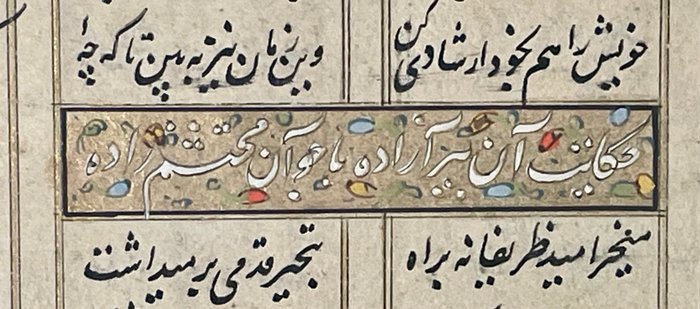 خویش را هم بخود ار شادی کن وین زمان نیز به بین تا که
حکایت آن پیر آزاده با جوان محتشم زاده
میخرامید ظریفانه براه بتبختر قدمی بر میداشت